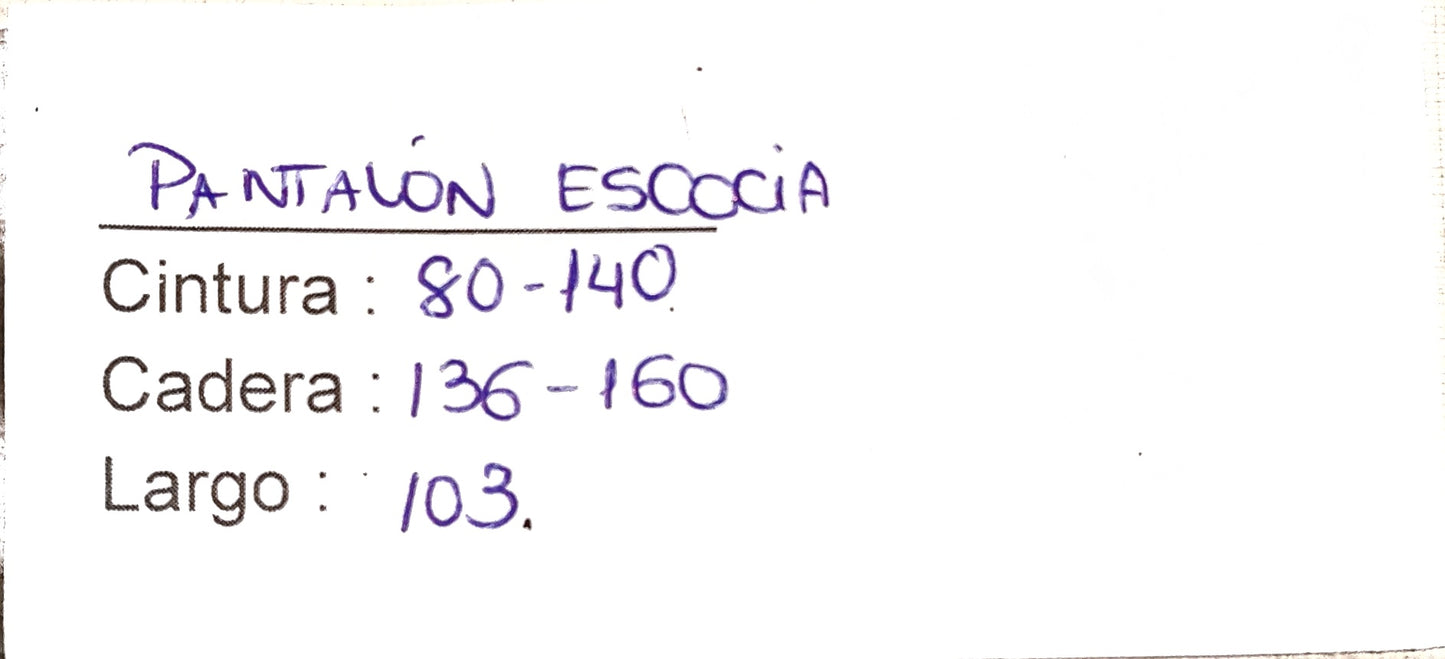 PANTALÓN ESCOCIA
Cintura : 80-140.
Cadera : 136-160
Largo : 103.